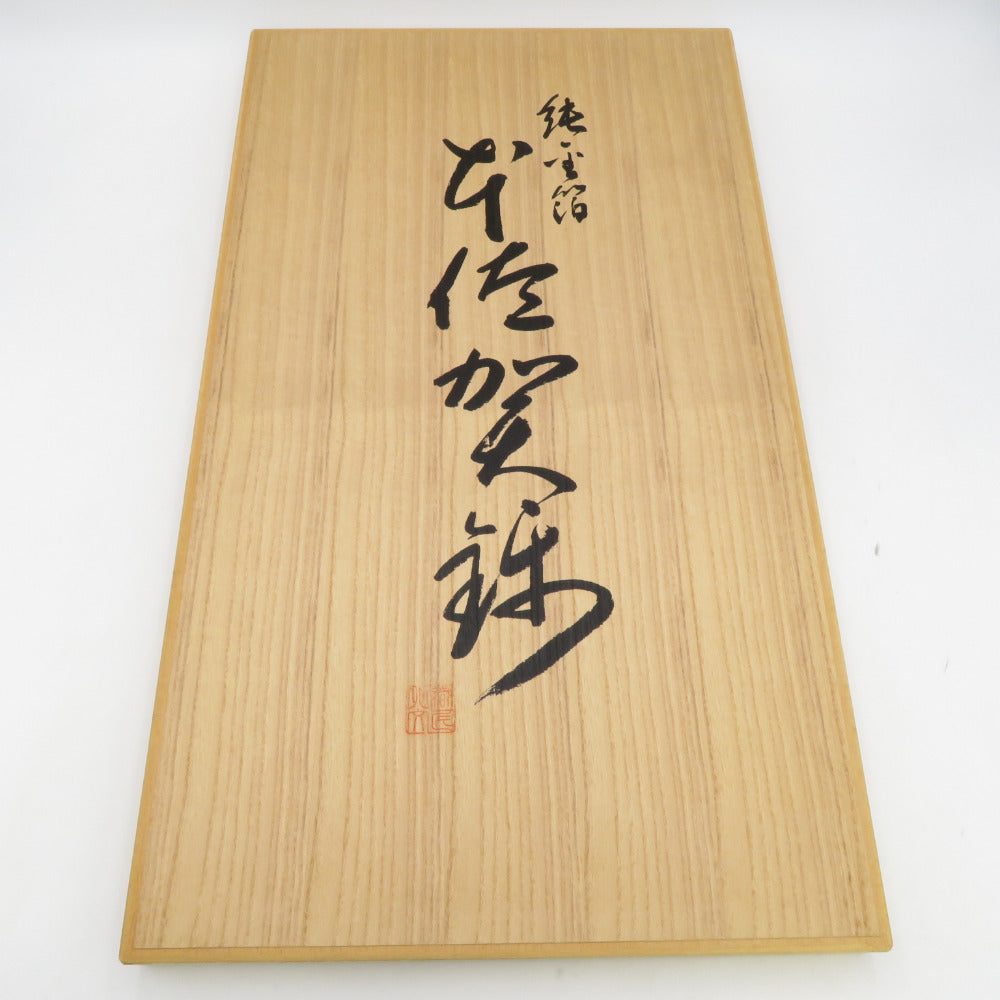 純金箔
本佐賀錦